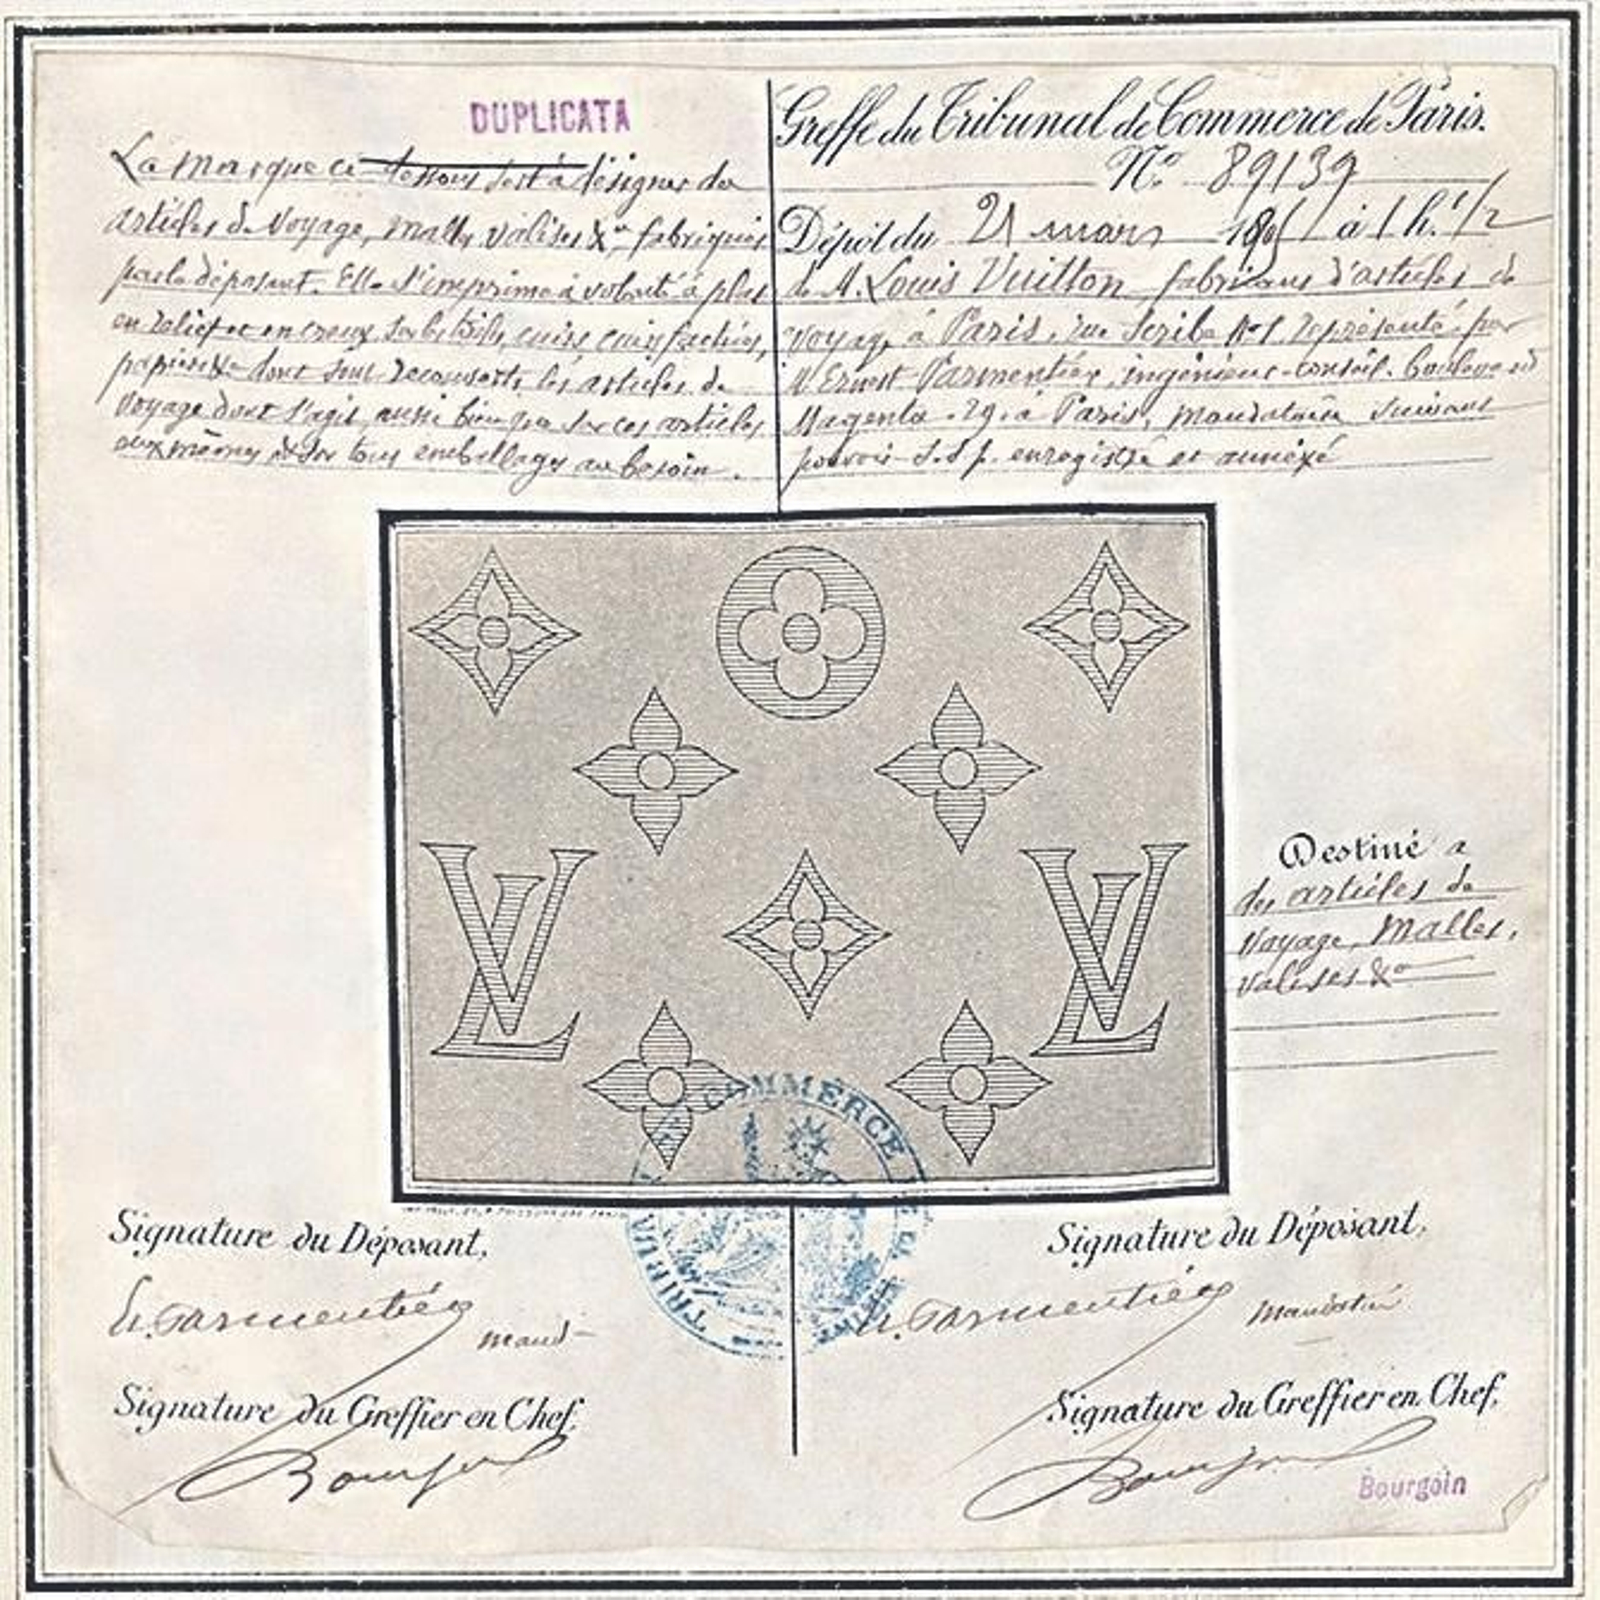 DUPLICATA
La marque ci-dessous sert à désigner des
articles de voyage, malles, valises &a fabriqués
par le déposant. Elle s'imprime à volonté à plat
en relief et en creux, sur les toiles, cuirs, cuirs factices,
papiers &a dont sont recouverts les articles de
voyage dont s'agit, aussi bien que sur ces articles
eux mêmes & sur tous emballages au besoin.
Greffe du Tribunal de Commerce de Paris.
No. 89139
Dépôt du 21 mars à 1 h. 1/2
de M. Louis Vuitton fabricant d'articles de
voyage, à Paris, rue Scribe No 1, représenté par
M Ernest Parmentier, ingénieur-conseil, boulevard
Magenta 29, à Paris, mandataire suivant
pouvoir s.s.p. enregistré et annexé
LV
LV
Destiné a
des articles de
voyage, Malles,
valises &a
TRIBUNAL DE COMMERCE
Signature du Déposant,
E. Parmentier mand-
Signature du Greffier en Chef,
Bourgoin
Signature du Déposant,
E. Parmentier mandataire
Signature du Greffier en Chef,
Bourgoin
Bourgoin